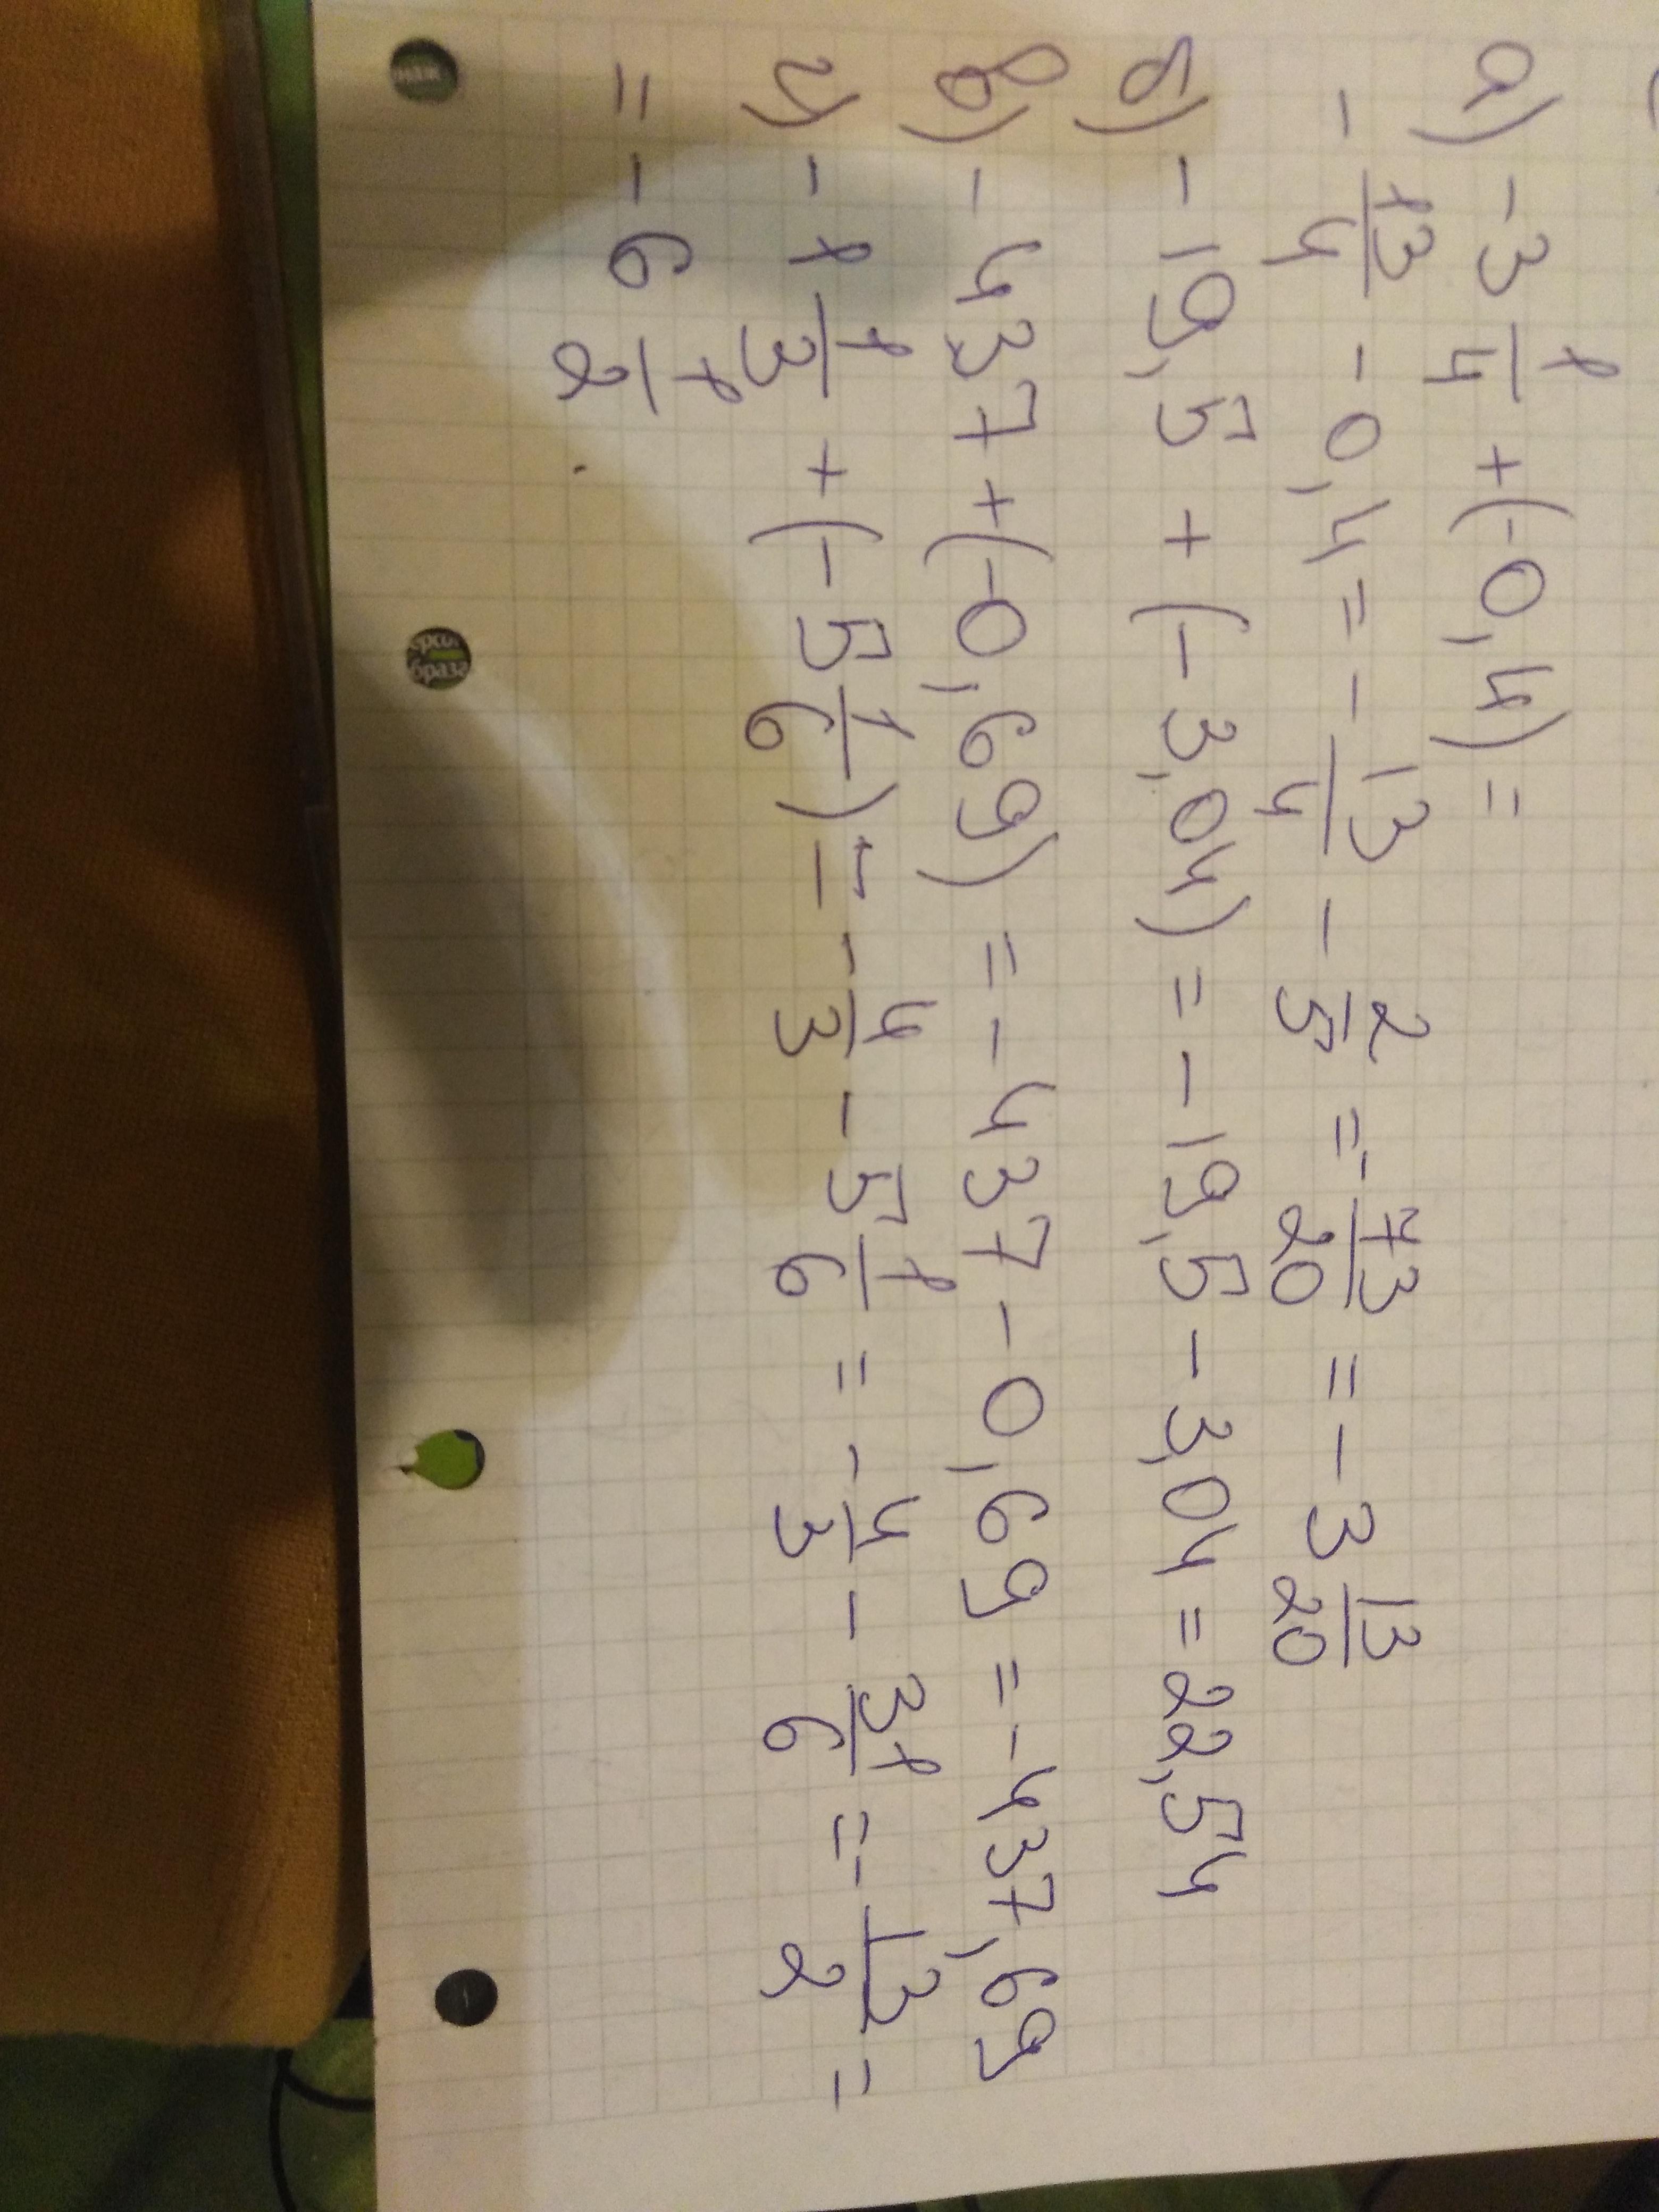 а) -3 1/4 + (-0,4) =
- 13/4 - 0,4 = - 13/4 - 2/5 = - 73/20 = - 3 13/20
б) - 19,5 + (- 3,04) = - 19,5 - 3,04 = 22,54
в) - 437 + (-0,69) = - 437 - 0,69 = - 437,69
г) - 1 1/3 + (- 5 1/6) = - 4/3 - 5 1/6 = - 4/3 - 31/6 = - 13/2 =
= - 6 1/2